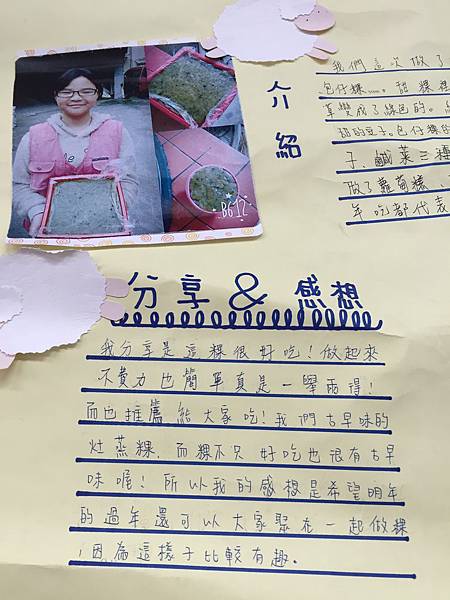 介紹
我們這次做了
包仔粿……。甜粿裡
草變成了綠色的。
甜的豆子。包仔粿的
子、鹹菜三種
做了蘿蔔糕、
年吃都代表
B612
分享 & 感想
我分享是這粿很好吃！做起來
不費力也簡單真是一舉兩得！
而也推薦給大家吃！我們古早味的
灶蒸粿，而粿不只好吃也很有古早
味喔！所以我的感想是希望明年
的過年還可以大家聚在一起做粿
，因為這樣子比較有趣。